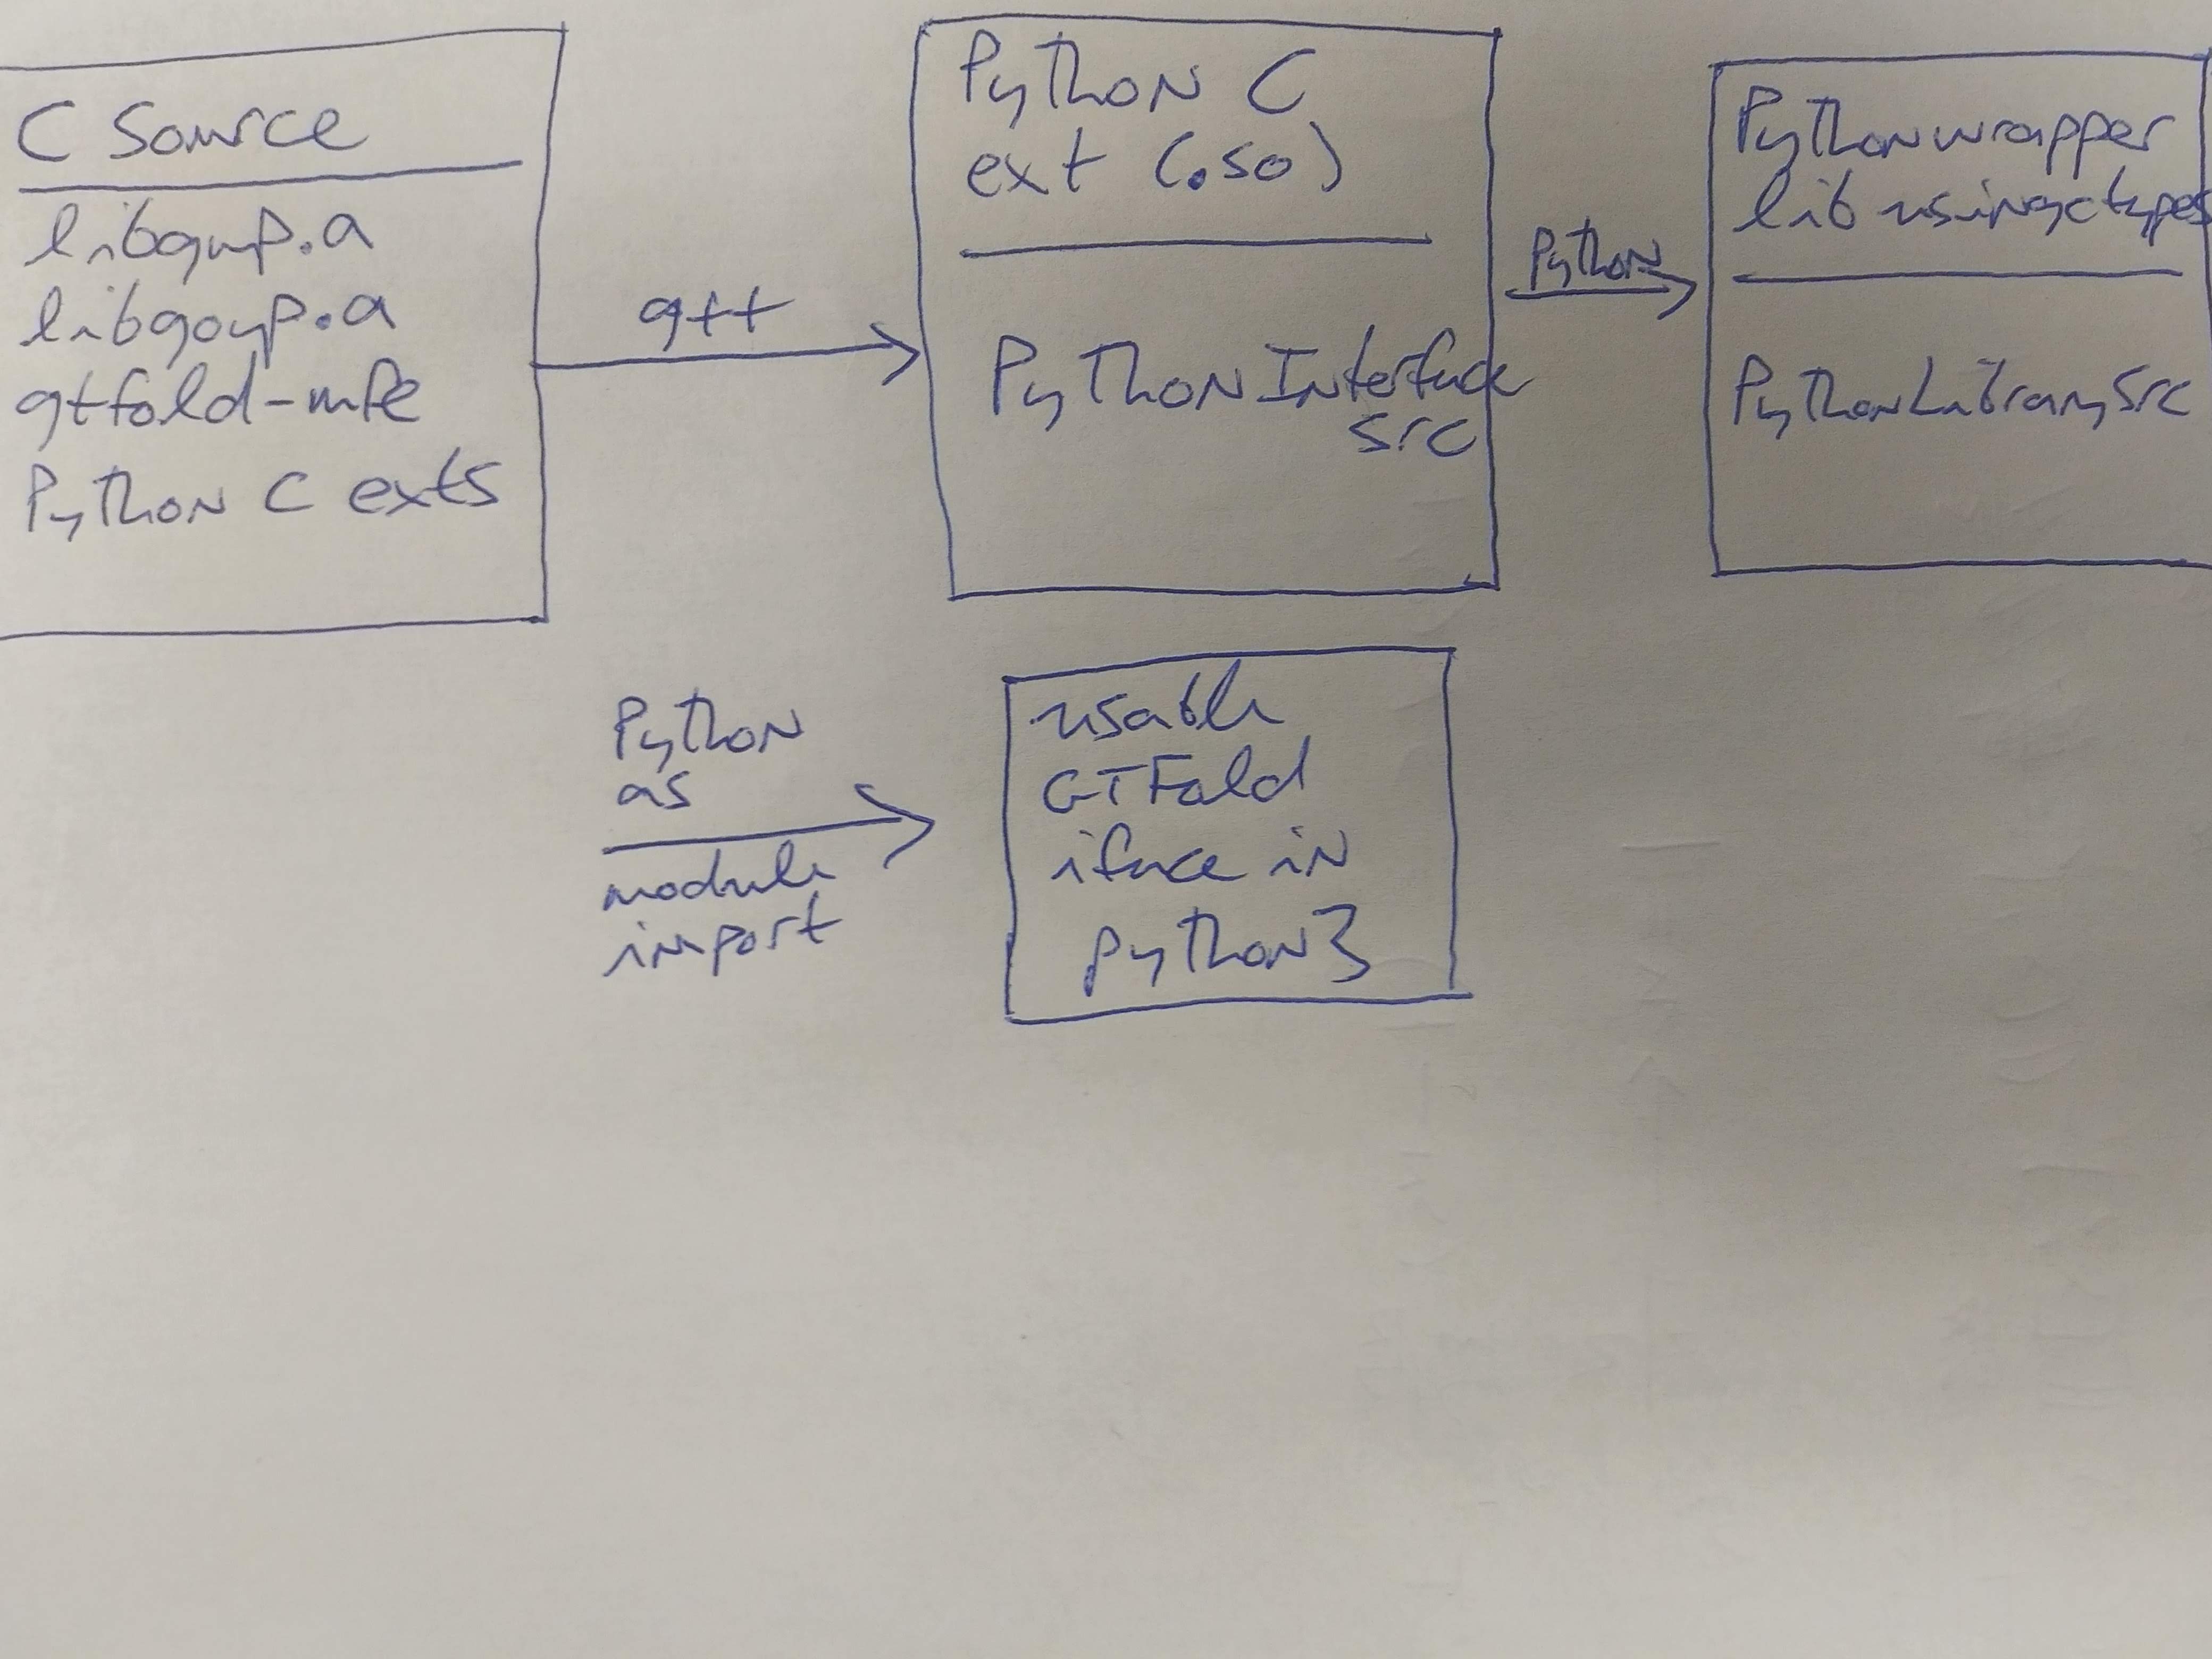 C Source
libgmp.a
libgomp.a
gtfold-mfe
Python C exts
g++
Python C
ext (.so)
PythonInterface
src
Python
Python wrapper
lib using ctypes
PythonLibrarySrc
Python
as
module
import
usable
GTFold
iface in
python3